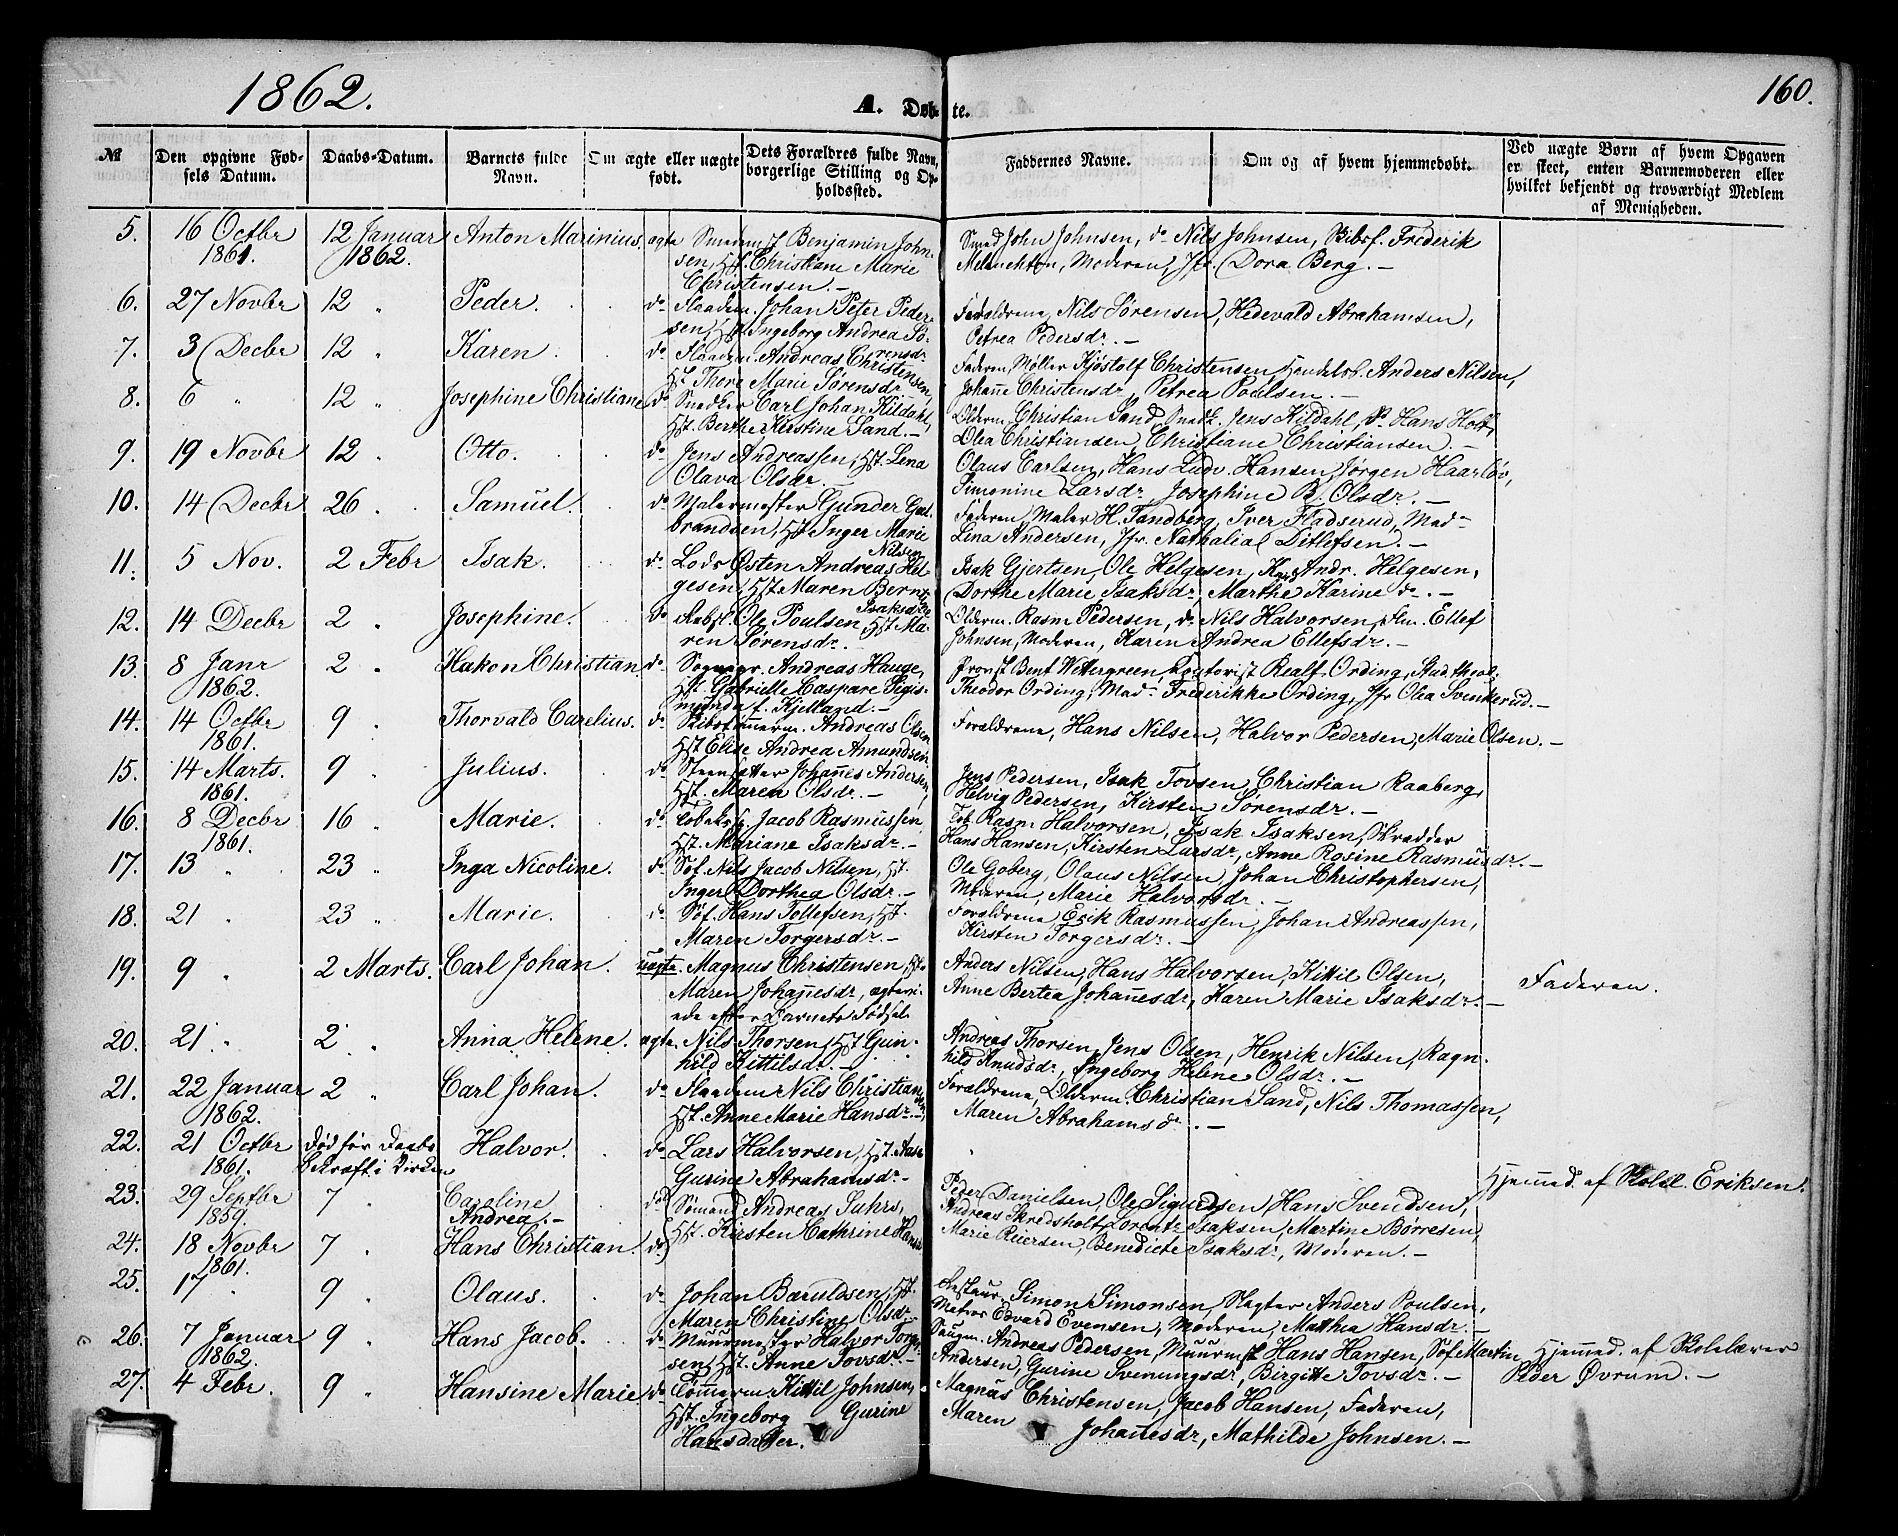 1862.
A. Døbte.
160.
№
Den opgivne Fødsels Datum.
Daabs-Datum.
Barnets fulde Navn.
Om ægte eller uægte født.
Dets Forældres fulde Navn, borgerlige Stilling og Opholdssted.
Faddernes Navne.
Om og af hvem hjemmedøbt.
Ved uægte Børn af hvem Opgaven er skeet, enten Barnemoderen eller hvilket bekjendt og troværdigt Medlem af Menigheden.
5. 16 Octbr 1861. 12 Januar 1862. Anton Marinius. ægte Smedem. Benjamin Johnsen, Hst. Christiane Marie Christensen.- Smed John Johnsen, do Nils Johnsen, Skibsf. Frederik Melanchton, Moderen, Jfr. Dora Berg.-
6. 27 Novbr 12 " Peder. do Flaadem. Johan Peter Pedersen, Hst. Ingeborg Andrea Sørensdr Forældrene, Nils Sørensen, Hedevald Abrahamsen, Petrea Pedersdr.-
7. 3 Decbr 12 " Karen. do Flaadem. Andreas Christensen, Hst. There Marie Sørensdr Faderen, Møller Kjøstolf Christensen, Handelsb. Anders Nilsen, Johanne Christensdr, Petrea Poulsen.-
8. 6 " 12 " Josephine Christiane do Snedker Carl Johan Kildahl, Hst. Berthe Kirstine Sand.- Olderm. Christian Sand, Snedk. Jens Kildahl, do Hans Holt, Olea Christiansen, Christiane Christiansen.-
9. 19 Novbr 12 " Otto. do Jens Andreassen, Hst. Lena Olava Olsdr.- Olaus Carlsen, Hans Ludv. Hansen, Jørgen Haarløv, Simonine Larsdr, Josephine B. Olsdr.-
10. 14 Decbr 26 " Samuel. do Malermester Gunder Gulbrandsen, Hst. Inger Marie Nilsen Faderen, Maler H. Tandberg, Iver Fladserud, Mad. Lina Andersen, Jfr. Nathalia Ditlefsen.-
11. 5 Nov. 2 Febr Isak. do Lods Østen Andreas Helgesen, Hst. Maren Isaksdr Isak Gjertsen, Ole Helgesen, Andr. Helgesen, Dorthe Marie Isaksdr, Marthe Karine do.-
12. 14 Decbr 2 " Josephine. do Ole Poulsen, Hst. Maren Sørensdr. Olderm. Rasm. Pedersen, do Nils Halvorsen, Ellef Johnsen, Moderen, Karen Andrea Ellefsdr.-
13. 8 Janr 1862. 2 " Hakon Christian do Sognepr. Andreas Hauge, Hst. Gabrielle Caspare Sigismunda f. Kjelland.- Provst Bent Wettergreen, Realf Ording, Stud. theol. Theodor Ording, Mad. Frederikke Ording, Jfr. Olea Svenkerud.-
14. 14 Octbr 1861. 9 " Thorvald Carelius. do Skibstømmerm. Andreas Olsen, Hst. Elise Andrea Amundsen. Forældrene, Hans Nilsen, Halvor Pedersen, Marie Olsen.-
15. 14 Marts. 1861. 9 " Julius. do Johannes Andersen, Hst. Maren Olsdr.- Jens Pedersen, Isak Tovsen, Christian Raaberg, Helvig Pedersen, Kirsten Sørensdr.-
16. 8 Decbr 1861. 16 " Marie. do Jacob Rasmussen, Hst. Mariane Isaksdr.- Rasm. Halvorsen, Isak Isaksen, Skrædder Hans Hansen, Kirsten Larsdr, Anne Rosine Rasmusdr.-
17. 13 " 23 " Inga Nicoline. do Søf. Nils Jacob Nilsen, Hst. Inger Dorthea Olsdr.- Ole Goberg, Olaus Nilsen, Johan Christophersen, Moderen, Marie Halvorsdr.-
18. 21 " 23 " Marie. do Søf. Hans Tollefsen, Hst. Maren Torgersdr.- Forældrene, Erik Rasmussen, Johan Andreassen, Kirsten Torgersdr.-
19. 9 " 2 Marts. Carl Johan. uægte. Magnus Christensen, Maren Johannesdr, ægteviede efter Barnets Fødsel. Anders Nilsen, Hans Halvorsen, Kittil Olsen, Anne Bertea Johannesdr, Karen Marie Isaksdr.- Faderen.
20. 21 " 2 " Anna Helene. ægte. Nils Thorsen, Hst. Gunhild Kittilsdr.- Andreas Thorsen, Jens Olsen, Henrik Nilsen, Ragnhild Knudsdr, Ingeborg Helene Olsdr.-
21. 22 Januar 1862. 2 " Carl Johan. do Flaadem. Nils Christiansen, Hst. Anne Marie Hansdr.- Forældrene, Olderm. Christian Sand, Nils Thomassen, Maren Abrahamsdr.-
22. 21 Octbr 1861. Død før Daabs Bekræft. i Kirken Halvor. do Lars Halvorsen, Hst. Aase Gurine Abrahamsdr.- Hjemmed. af Skolel. Eriksen.
23. 29 Septbr 1859. 7 " Caroline Andrea.- do Sømand Andreas Suhrs, Hst. Kirsten Cathrine Peder Danielsen, Ole Sigurdsen, Hans Svendsen, Andreas Skredsholt, Lorentz Isaksen, Martine Børresen, Marie Reiersen, Benedicte Isaksdr, Moderen.-
24. 18 Novbr 1861. 7 " Hans Christian. do
25. 17 " 9 " Olaus. do Johan Baruldsen, Hst. Maren Christine Olsdr. Simon Simonsen, Slagter Anders Poulsen, Matros Edvard Evensen, Moderen, Mathia Hansdr.-
26. 7 Januar 1862. 9 " Hans Jacob. do Muurmester Halvor Torgersen, Hst. Anne Tovsdr.- Saugm. Andreas Pedersen, Muurmst. Hans Hansen, Søf. Martin Andersen, Gurine Svenungsdr, Birgitte Tovsdr.- Hjemmed. af Skolelærer Peder Øvrum.-
27. 4 Febr. 9 " Hansine Marie do Tømmerm. Kittil Johnsen, Hst. Ingeborg Gurine Hansdatter. Magnus Christensen, Jacob Hansen, Faderen, Maren Johannesdr, Mathilde Johnsen.-